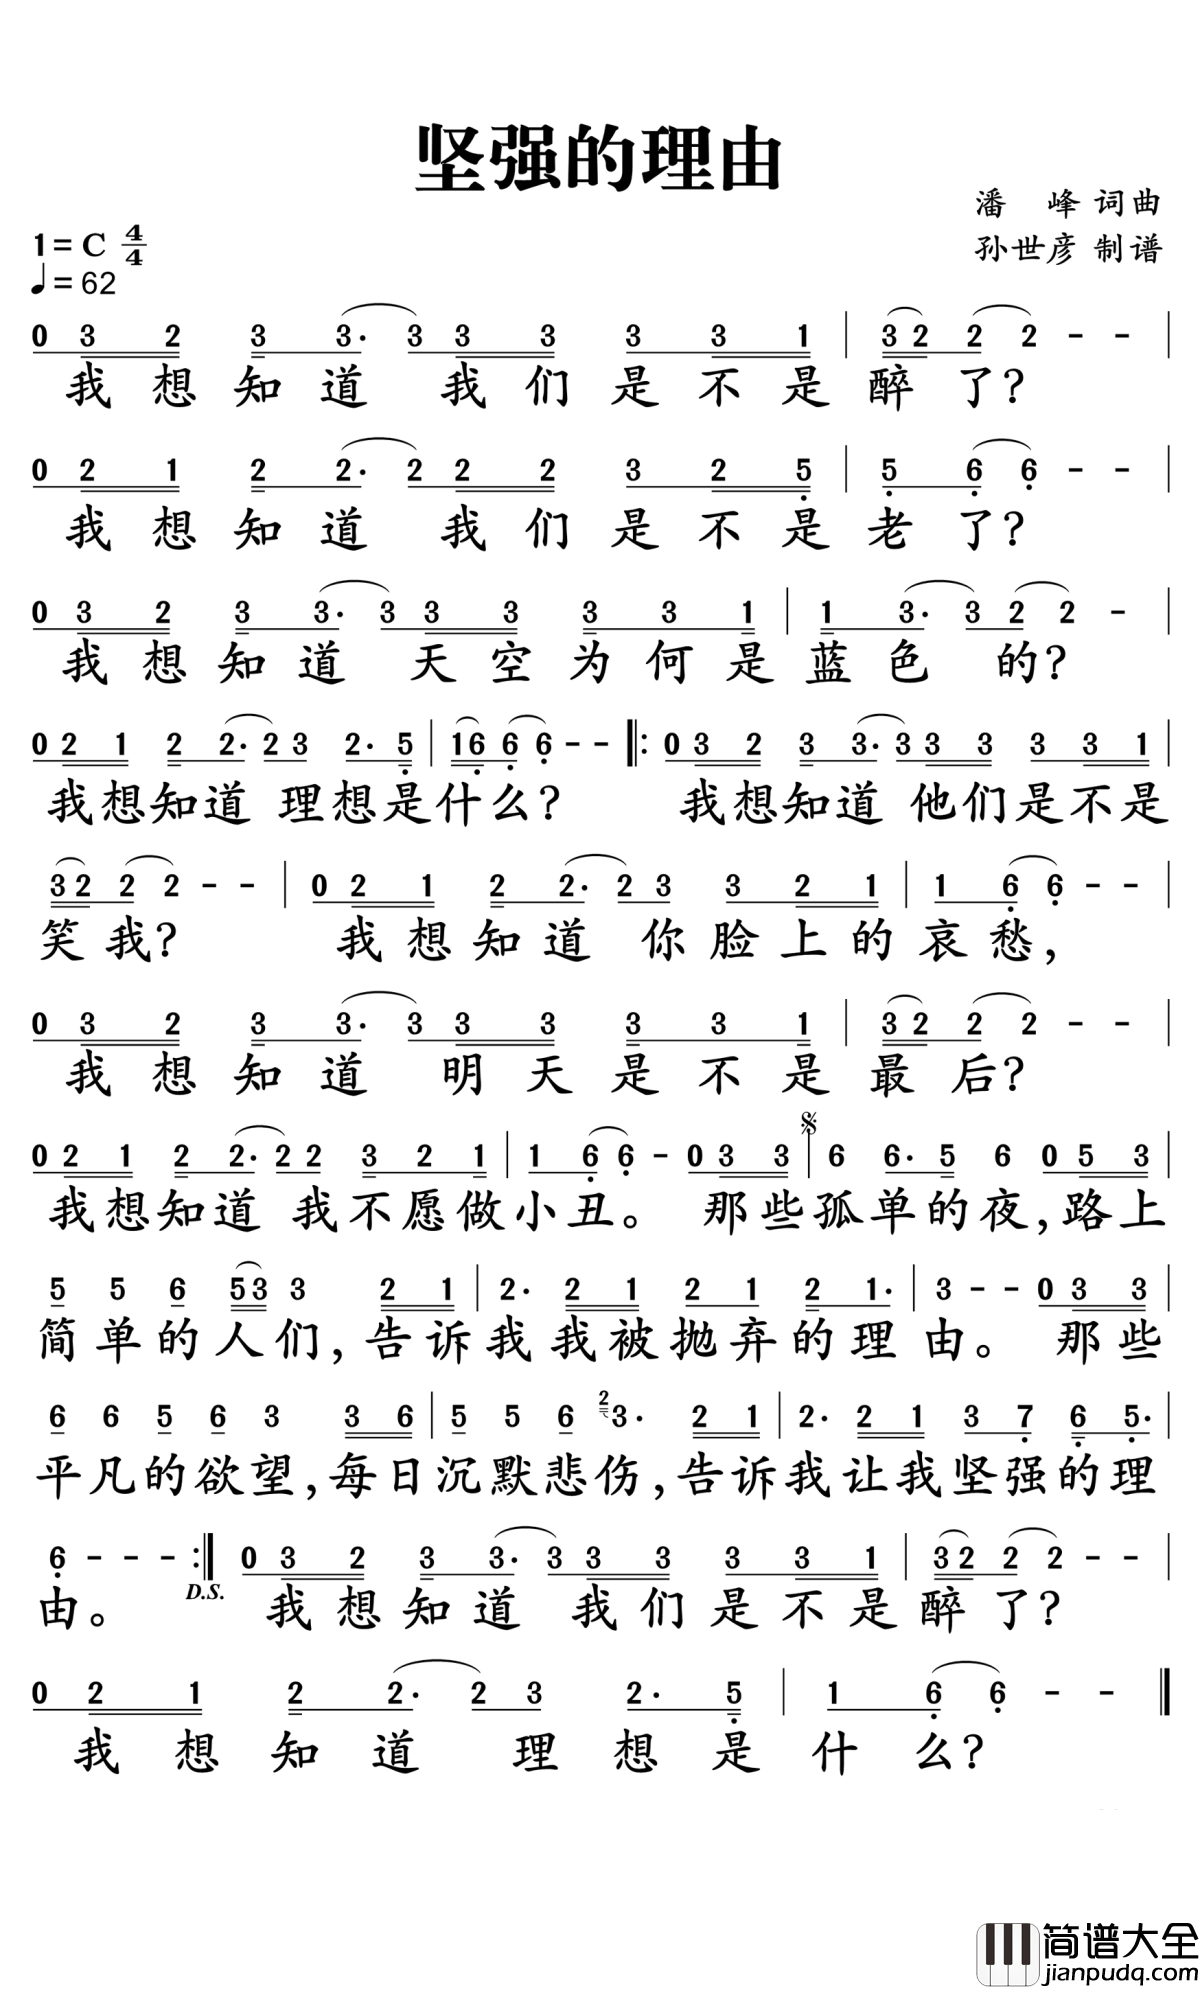 坚强的理由
潘 峰 词曲
1=C 4/4
孙世彦 制谱
♩=62
0 3 2 3 3· 3 3 3 3 3 1 | 3 2 2 2 - - |
我想知道 我们是不是醉了?
0 2 1 2 2· 2 2 2 3 2 5̣ | 5̣ 6̣ 6̣ - - |
我想知道 我们是不是老了?
0 3 2 3 3· 3 3 3 3 3 1 | 1 3· 3 2 2 - |
我想知道 天空为何是蓝色 的?
0 2 1 2 2· 2 3 2· 5̣ | 1 6̣ 6̣ 6̣ - - ‖: 0 3 2 3 3· 3 3 3 3 3 1 |
我想知道 理想是什么? 我想知道 他们是不是
3 2 2 2 - - | 0 2 1 2 2· 2 3 3 2 1 | 1 6̣ 6̣ - - |
笑我? 我想知道 你脸上的哀愁,
0 3 2 3 3· 3 3 3 3 3 1 | 3 2 2 2 - - |
我想知道 明天是不是最后?
0 2 1 2 2· 2 2 3 2 1 | 1 6̣ 6̣ - 0 3 3 | 6 6· 5 6 0 5 3 |
我想知道 我不愿做小丑。 那些孤单的夜,路上
5 5 6 5 3 3 2 1 | 2· 2 1 2 1 2 1· | 3 - - 0 3 3 |
简单的人们,告诉我我被抛弃的理由。 那些
6 6 5 6 3 3 6 | 5 5 6 2 3· 2 1 | 2· 2 1 3 7̣ 6̣ 5̣· |
平凡的欲望,每日沉默悲伤,告诉我让我坚强的理
6̣ - - - :‖ 0 3 2 3 3· 3 3 3 3 3 1 | 3 2 2 2 - - |
D.S.
由。 我想知道 我们是不是醉了?
0 2 1 2 2· 2 3 2· 5̣ | 1 6̣ 6̣ - - ‖
我想知道 理想是什么?
简谱大全
jianpudq.com